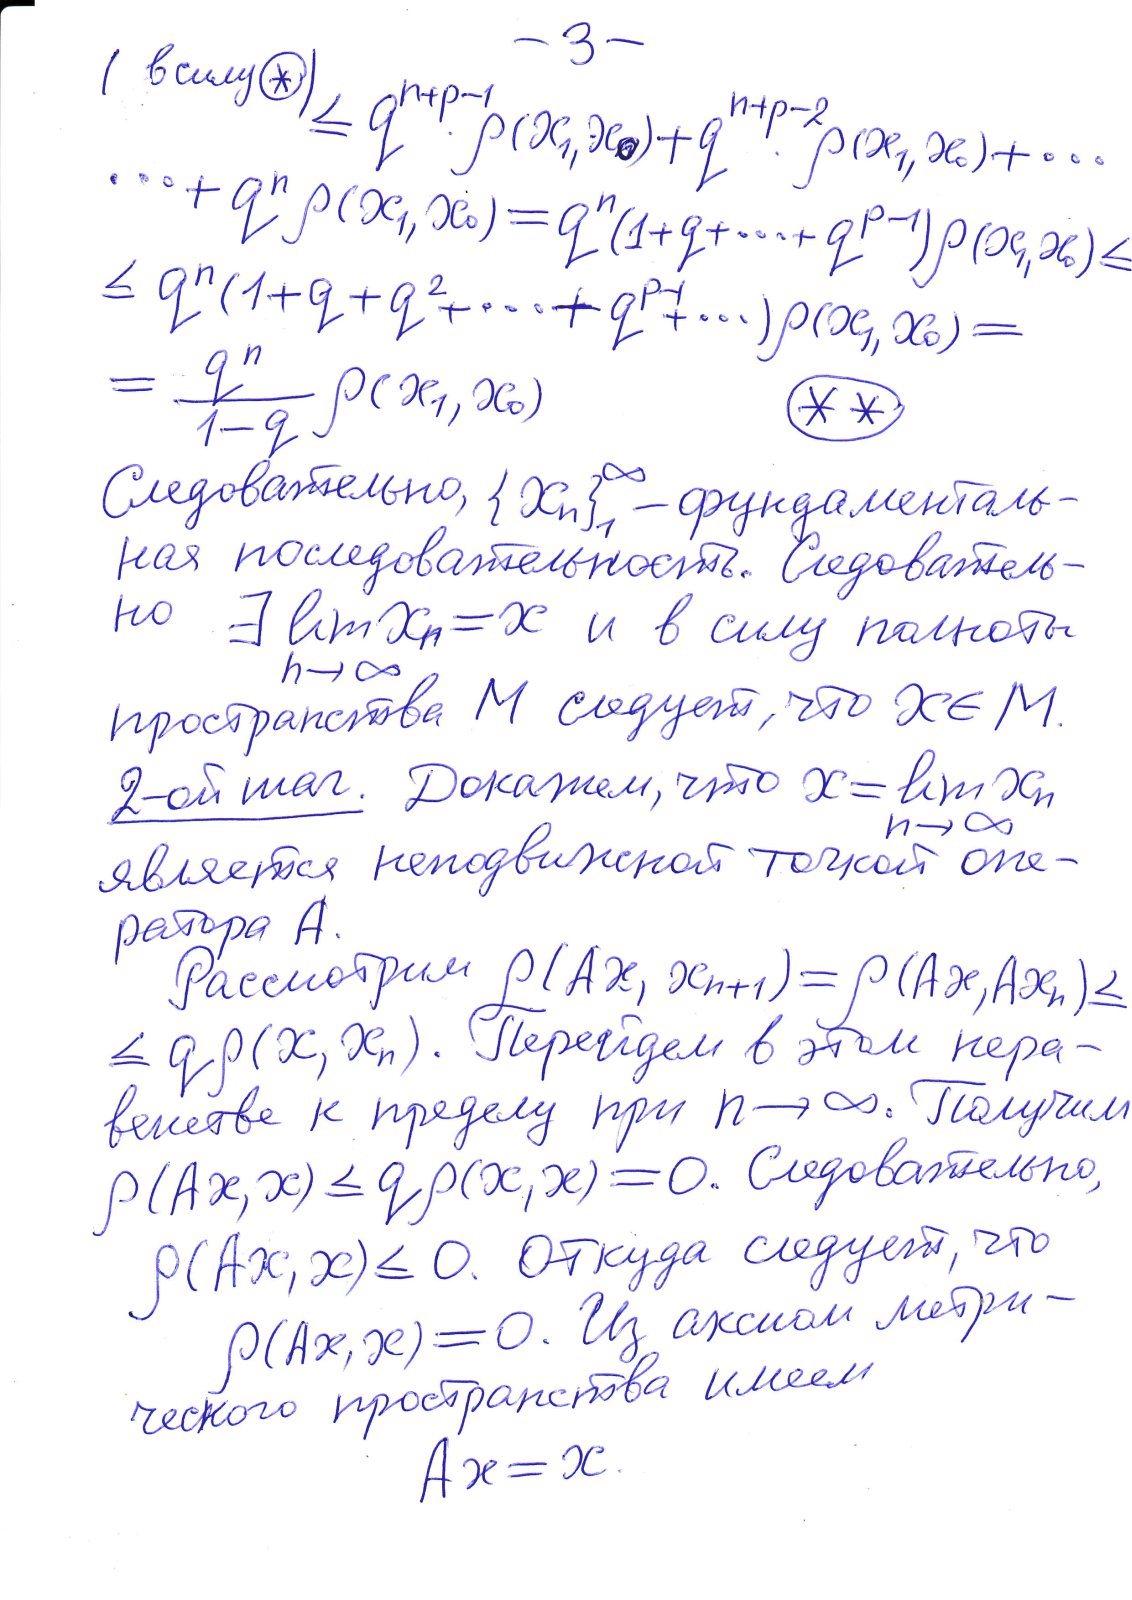 – 3 –
( в силу ⊛) ≤ q^{n+p-1} · ρ(x₁, x₀) + q^{n+p-2} · ρ(x₁, x₀) + ···
··· + qⁿ ρ(x₁, x₀) = qⁿ(1+q+···+q^{p-1}) ρ(x₁, x₀) ≤
≤ qⁿ(1+q+q²+···+q^{p-1}+···) ρ(x₁, x₀) =
= \frac{qⁿ}{1-q} ρ(x₁, x₀) (**)
Следовательно, {xₙ}₁^∞ – фундаменталь-
ная последовательность. Следователь-
но ∃ lim_{n→∞} xₙ = x и в силу полноты
пространства M следует, что x ∈ M.
2-ой шаг. Докажем, что x = lim_{n→∞} xₙ
является неподвижной точкой опе-
ратора A.
Рассмотрим ρ(Ax, xₙ₊₁) = ρ(Ax, Axₙ) ≤
≤ qρ(x, xₙ). Перейдем в этом нера-
венстве к пределу при n → ∞. Получим
ρ(Ax, x) ≤ qρ(x, x) = 0. Следовательно,
ρ(Ax, x) ≤ 0. Откуда следует, что
ρ(Ax, x) = 0. Из аксиом метри-
ческого пространства имеем
Ax = x.